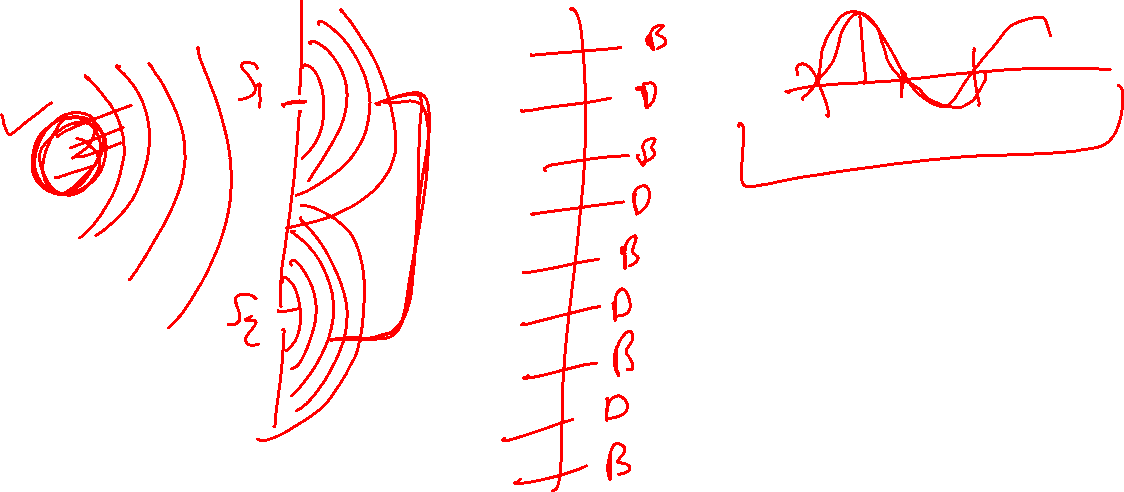 S1
S2
B
D
B
D
B
D
B
D
B